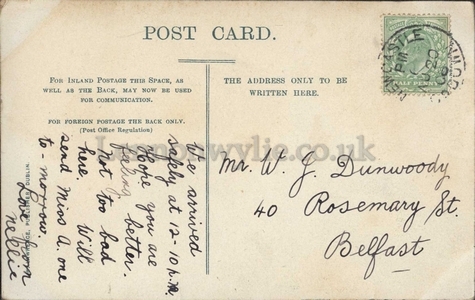 POST CARD.
FOR INLAND POSTAGE THIS SPACE, AS
WELL AS THE BACK, MAY NOW BE USED
FOR COMMUNICATION.
FOR FOREIGN POSTAGE THE BACK ONLY.
(Post Office Regulation)
THE ADDRESS ONLY TO BE
WRITTEN HERE.
We arrived
safely at 12-10 p.m.
Hope you are
feeling better.
Not too bad
here. Will
send Miss A. one
to-morrow.
Love from
Nellie
Mr. W. J. Dunwoody
40 Rosemary St.
Belfast
NEWCASTLE
CO. DOWN
HALF PENNY
DUBLIN.
wylie.co.uk